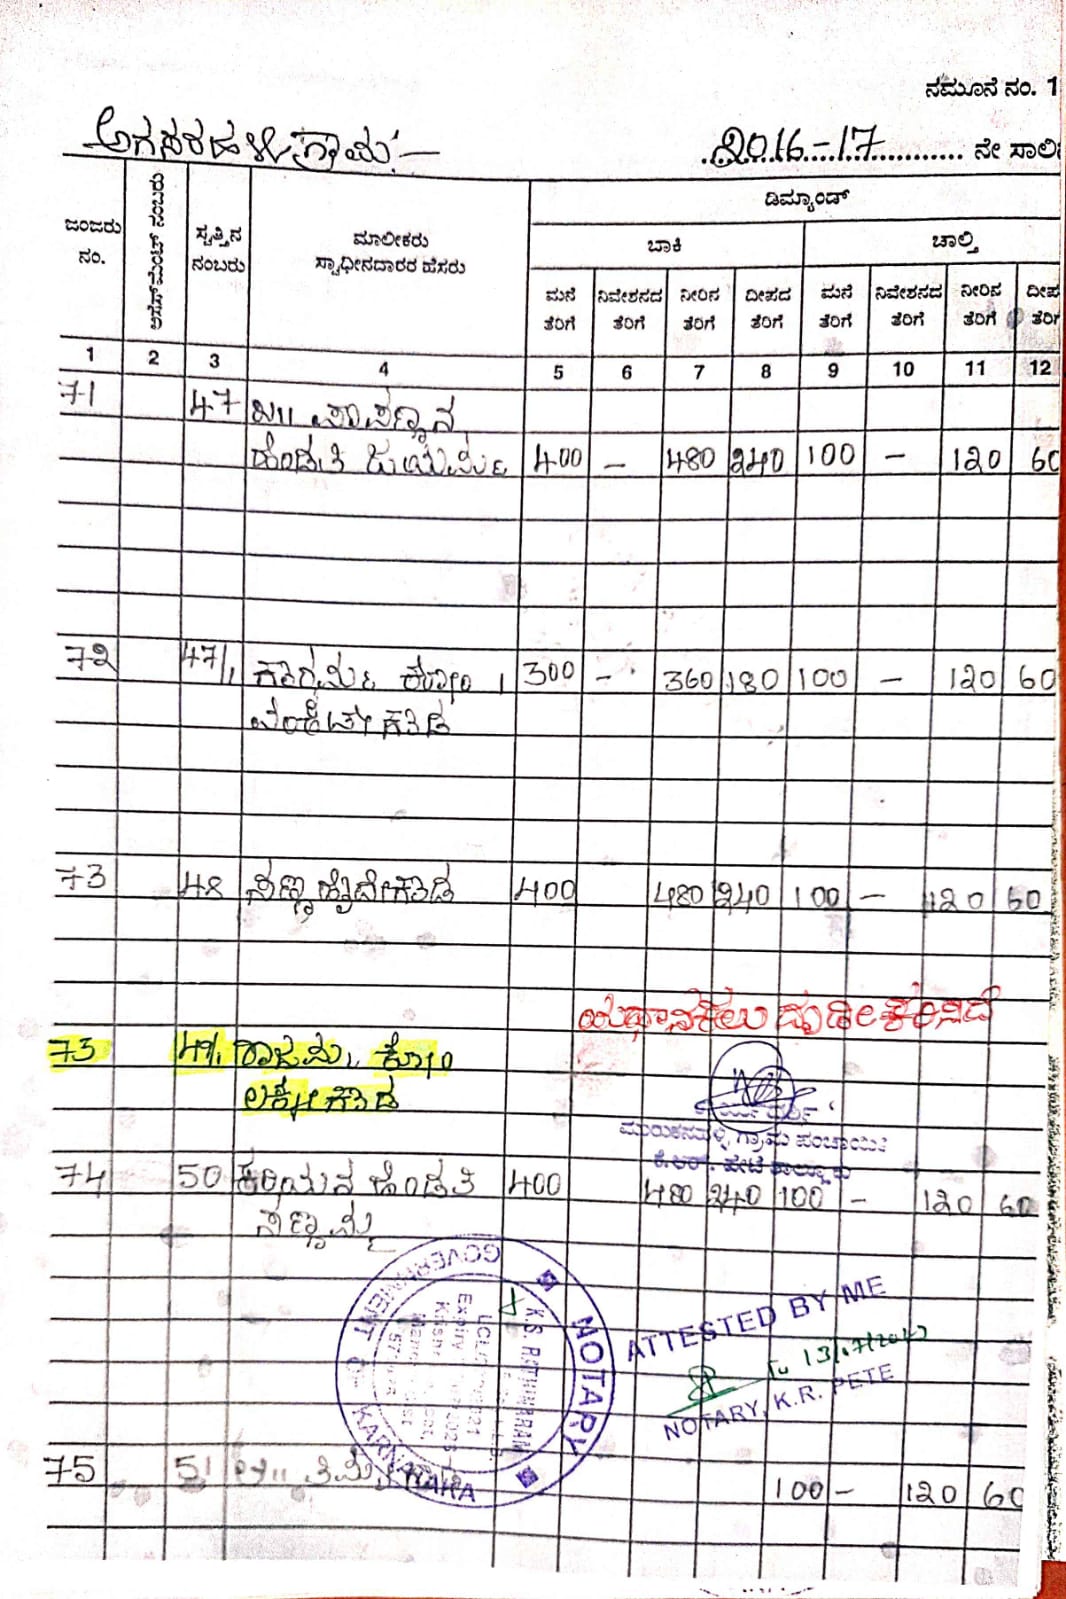 ನಮೂನೆ ನಂ. 1
ಅಗಸರಹಳ್ಳಿ ಗ್ರಾಮ
2016-17 ನೇ ಸಾಲಿ
ಜಂಜರು ನಂ.
ಅಸೆಸ್‌ಮೆಂಟ್ ನಂಬರು
ಸ್ವತ್ತಿನ ನಂಬರು
ಮಾಲೀಕರು
ಸ್ವಾಧೀನದಾರರ ಹೆಸರು
ಡಿಮ್ಯಾಂಡ್
ಬಾಕಿ ಚಾಲ್ತಿ
ಮನೆ ನಿವೇಶನದ ನೀರಿನ ದೀಪದ ಮನೆ ನಿವೇಶನದ ನೀರಿನ ದೀಪ
ತೆರಿಗೆ ತೆರಿಗೆ ತೆರಿಗೆ ತೆರಿಗೆ ತೆರಿಗೆ ತೆರಿಗೆ ತೆರಿಗೆ ತೆರಿಗೆ
1 2 3 4 5 6 7 8 9 10 11 12
71 47 ಪಾಪಣ್ಣನ
ಹೆಂಡತಿ ಜಯಮ್ಮ 400 - 480 240 100 - 120 60
72 47/1 ಕೋಂ 300 - 360 180 100 - 120 60
73 48 ಸಣ್ಣಹೈದೇಗೌಡ 400 480 240 100 - 120 60
ಯಥಾನಕಲು ದೃಢೀಕರಿಸಿದೆ
73 49/1 ರಾಜಮ್ಮ ಕೋಂ
ಲಕ್ಕೇಗೌಡ
ಗ್ರಾಮ ಪಂಚಾಯಿತಿ
ಕೆ.ಆರ್. ಪೇಟೆ ತಾಲ್ಲೂಕು
74 50 ಕರಿಯನ ಹೆಂಡತಿ 400 480 240 100 - 120 60
ಸಣ್ಣಮ್ಮ
GOVERNMENT OF KARNATAKA
NOTARY
ATTESTED BY ME
13/07/2023
NOTARY, K.R. PETE
75 51 100 - 120 60